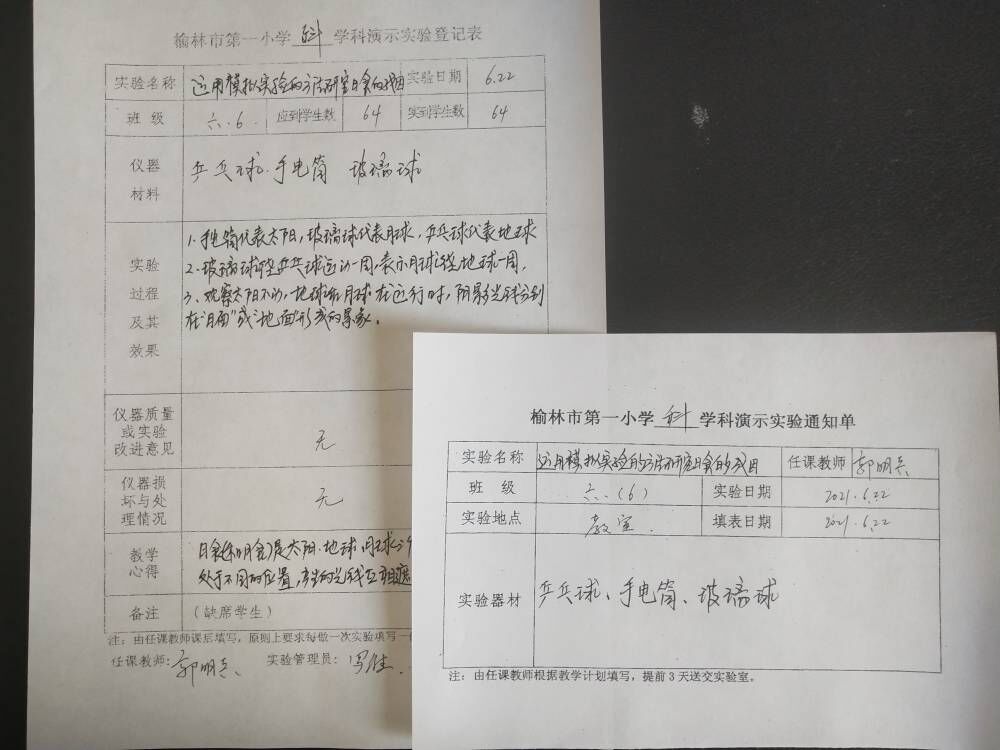 榆林市第一小学 科 学科演示实验登记表
实验名称 运用模拟实验的方法研究日食的成因 实验日期 6.22
班 级 六.6. 应到学生数 64 实到学生数 64
仪器材料 乒乓球.手电筒 玻璃球
实验过程及其效果
1.手电筒代表太阳,玻璃球代表月球,乒乓球代表地球
2.玻璃球绕乒乓球运动一周,表示月球绕地球一周,
3、观察太阳不动,地球和月球在运行时,阴影光线分别
在"月面"或"地面"形成的景象。
仪器质量或实验改进意见 无
仪器损坏与处理情况 无
教学心得
日食(和月食)是太阳.地球.月球分
处于不同的位置,产生的光线互相遮
备注 (缺席学生)
注:由任课教师课后填写,原则上要求每做一次实验填写一
任课教师:郭明兵 实验管理员:
榆林市第一小学 科 学科演示实验通知单
实验名称 运用模拟实验的方法研究日食的成因 任课教师 郭明兵
班 级 六.(6) 实验日期 2021.6.22
实验地点 教室. 填表日期 2021.6.22
实验器材 乒乓球、手电筒、玻璃球
注:由任课教师根据教学计划填写,提前3天送交实验室。